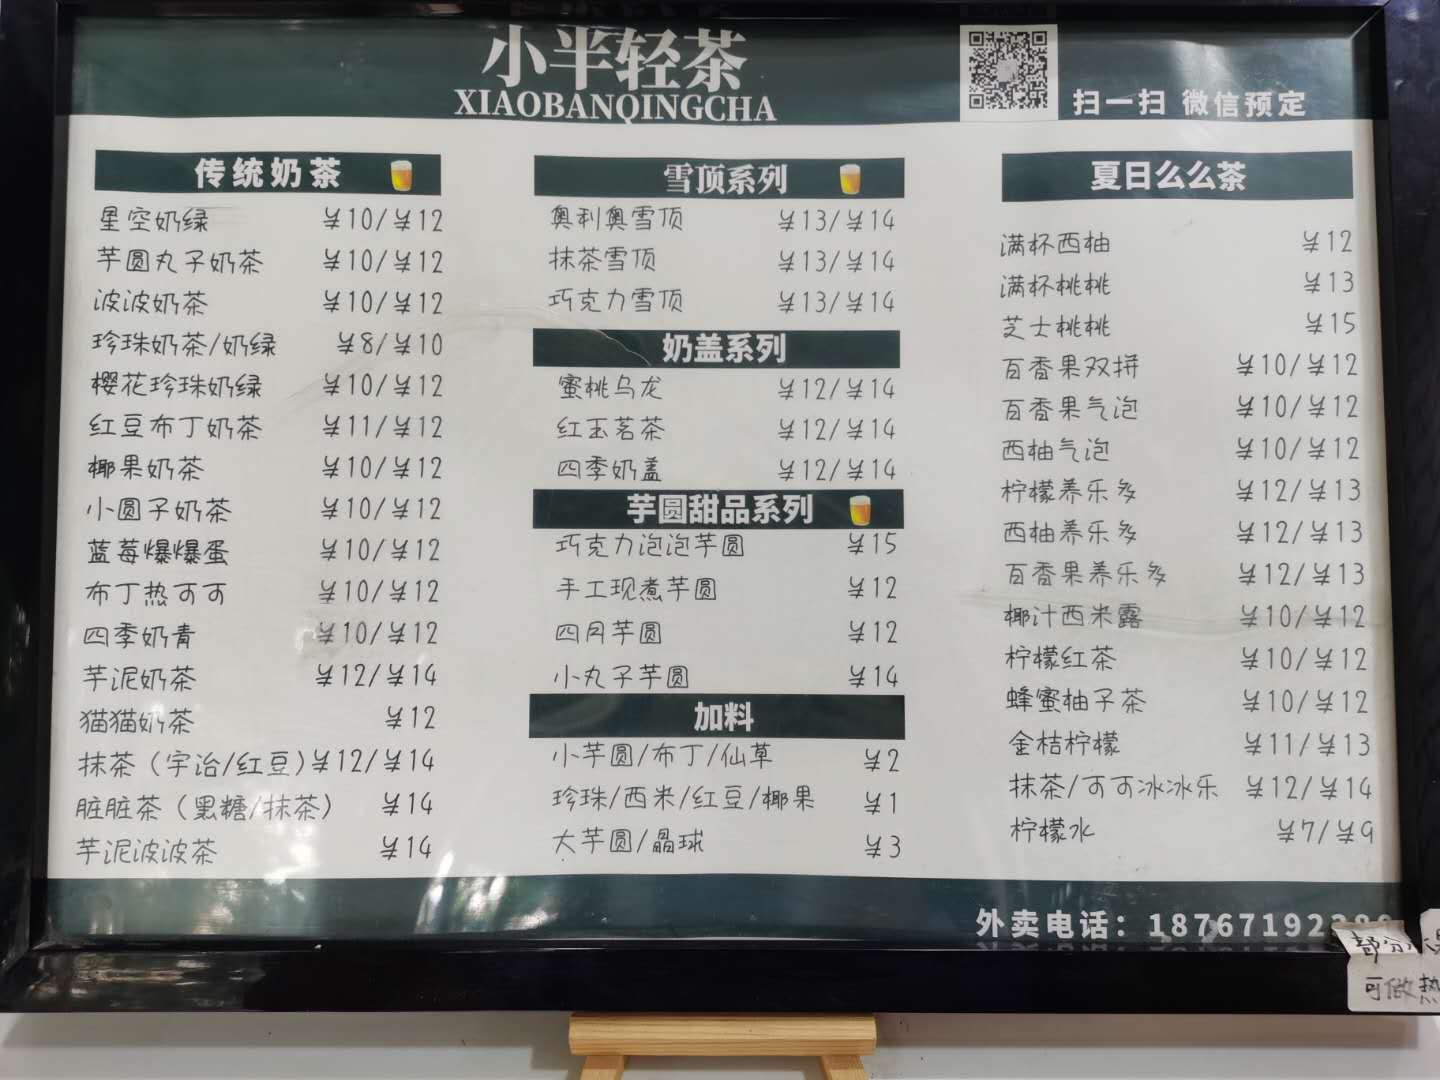 小半轻茶
XIAOBANQINGCHA
扫一扫 微信预定
传统奶茶
星空奶绿 ¥10/¥12
芋圆丸子奶茶 ¥10/¥12
波波奶茶 ¥10/¥12
珍珠奶茶/奶绿 ¥8/¥10
樱花珍珠奶绿 ¥10/¥12
红豆布丁奶茶 ¥11/¥12
椰果奶茶 ¥10/¥12
小圆子奶茶 ¥10/¥12
蓝莓爆爆蛋 ¥10/¥12
布丁热可可 ¥10/¥12
四季奶青 ¥10/¥12
芋泥奶茶 ¥12/¥14
猫猫奶茶 ¥12
抹茶（宇治/红豆）¥12/¥14
脏脏茶（黑糖/抹茶） ¥14
芋泥波波茶 ¥14
雪顶系列
奥利奥雪顶 ¥13/¥14
抹茶雪顶 ¥13/¥14
巧克力雪顶 ¥13/¥14
奶盖系列
蜜桃乌龙 ¥12/¥14
红玉茗茶 ¥12/¥14
四季奶盖 ¥12/¥14
芋圆甜品系列
巧克力泡泡芋圆 ¥15
手工现煮芋圆 ¥12
四月芋圆 ¥12
小丸子芋圆 ¥14
加料
小芋圆/布丁/仙草 ¥2
珍珠/西米/红豆/椰果 ¥1
大芋圆/晶球 ¥3
夏日么么茶
满杯西柚 ¥12
满杯桃桃 ¥13
芝士桃桃 ¥15
百香果双拼 ¥10/¥12
百香果气泡 ¥10/¥12
西柚气泡 ¥10/¥12
柠檬养乐多 ¥12/¥13
西柚养乐多 ¥12/¥13
百香果养乐多 ¥12/¥13
椰汁西米露 ¥10/¥12
柠檬红茶 ¥10/¥12
蜂蜜柚子茶 ¥10/¥12
金桔柠檬 ¥11/¥13
抹茶/可可冰冰乐 ¥12/¥14
柠檬水 ¥7/¥9
外卖电话：18767192
部分
可做热